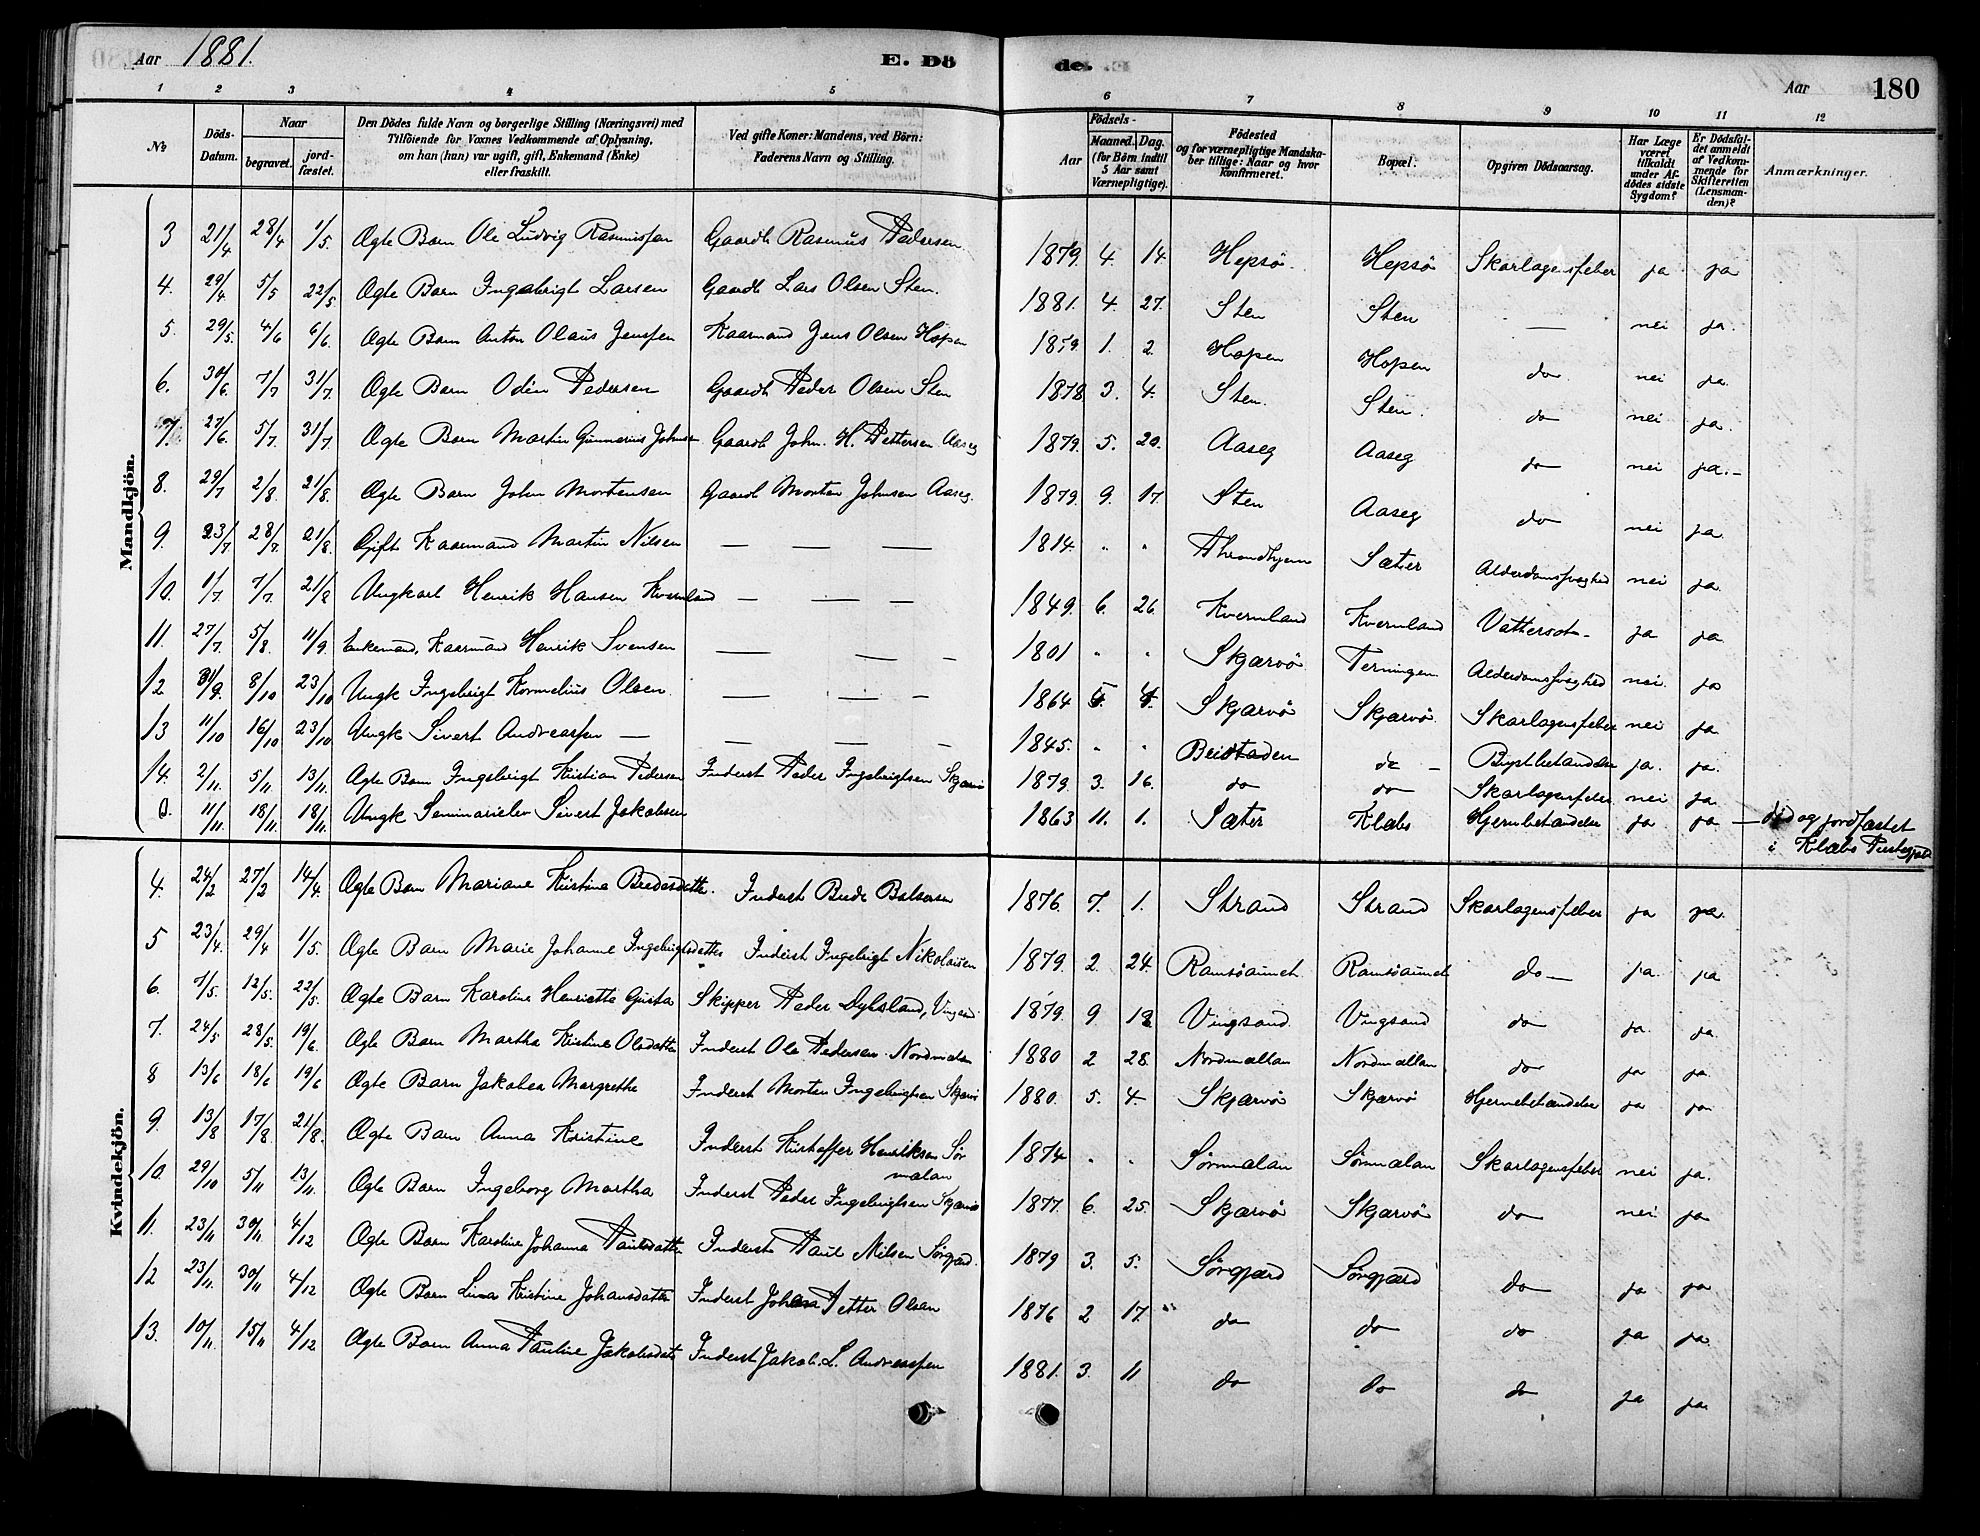 Aar 1881. E. Dö de. Aar 180
1 2 3 4 5 6 7 8 9 10 11 12
No Döds-Datum. Naar begravet. jordfæstet. Den Dödes fulde Navn og borgerlige Stilling (Næringsvei) med Tilföiende for Voxnes Vedkommende af Oplysning, om han (hun) var ugift, gift, Enkemand (Enke) eller fraskilt. Ved gifte Koner: Mandens, ved Börn: Faderens Navn og Stilling. Födsels- Aar Maaned. Dag. (for Börn indtil 5 Aar samt Værnepligtige). Födested og for værnepligtige Mandskaber tillige: Naar og hvor konfirmeret. Bopæl. Opgiven Dödsaarsag. Har Læge været tilkaldt under Afdödes sidste Sygdom? Er Dödsfaldet anmeldt af Vedkommende for Skifteretten (Lensmanden)? Anmærkninger.
Mandkjön.
3 21/4 28/4 1/5. Ægte Barn Ole Ludvig Rasmussen Gaardb. Rasmus Pedersen 1879. 4. 14. Hepsö. Hepsö Skarlagensfeber ja ja
4. 29/4 5/5 22/5 Ægte Barn Ingebrigt Larsen Gaardb. Lars Olsen Sten. 1881. 4. 27. Sten Sten — nei ja.
5. 29/5. 4/6 6/6. Ægte Barn Anton Olaus Jenssen Kaarmand Jens Olsen Hopen 1879. 1. 2. Hopen Hopen do nei ja.
6. 30/6. 7/7 31/7. Ægte Barn Odin Pedersen Gaardb. Peder Olsen Sten 1878 3. 4. Sten. Sten. do nei ja.
7. 27/6. 5/7. 31/7 Ægte Barn Martin Gunnerius Johnsen Gaardb. John. H. Pettersen Aaseg 1879. 5. 20. Aaseg Aaseg do nei ja. -
8. 29/7 2/8. 21/8. Ægte Barn John Mortensen Gaardb. Morten Johnsen Aaseg. 1879. 9. 17. Sten Aaseg do nei ja.
9. 23/7 28/7. 21/8. Gift Kaarmand Martin Nilsen — — — 1814. " " Throndhjem Sæter Alderdomssvaghed nei ja.
10. 1/7. 7/7. 21/8 Ungkarl Henrik Hansen Kvernland — — — 1849. 6. 26. Kvernland Kvernland Vattersot - ja ja
11. 27/7. 5/8. 11/9. Enkemand, Kaarmand Henrik Svensen — — — 1801 " " Skjærvö Terningen Alderdomssvaghed nei. ja
12 8/10 23/10 Ungk Ingebrigt Kornelius Olsen. — — — 1864 Skjærvö Skjærvö. Skarlagensfeber nei ja
13 11/10 16/10 23/10 Ungk Sivert Andreassen — — — — 1845. " " do - ja. ja.
14. 2/11. 5/11 13/11. Ægte Barn Ingebrigt Kristian Pedersen Inderst Peder Ingebrigtsen Skjærvö 1879. 3. 16. do do Skarlagensfeber nei ja
0. 11/11. 18/11. 18/11. Ungk Seminarielev Sivert Jakobsen 1863 11. 1. Sæter Klæbo Hjernebetændelse ja ja — död og jordfæstet
i Klæbo Prestegjeld
Kvindekjön.
4. 24/2 27/2 14/4. Ægte Barn Mariane Kristina Bredesdatter. Inderst Brede Balsersen 1876. 7. 1. Strand Strand Skarlagensfeber ja ja.
5 23/4. 29/4 1/5. Ægte Barn Marie Johanne Ingebrigtsdatter Inderst Ingebrigt Nikolaisen 1879. 2. 24. Ramsöaunet. Ramsöaunet do — ja. ja
6. 7/5. 12/5. 22/5. Ægte Barn Karoline Henriette Gusta Skipper Peder Dyhsland, Vingsand 1879. 9 18. Vingsand. Vingsand do ja. ja.
7. 24/5 28/5. 19/6. Ægte Barn Martha Kristine Olsdatter Inderst Ole Pedersen Nordmelan 1880 2 28. Nordmællan Nordmællan do ja ja.
8 13/6 18/6 19/6 Ægte Barn Jakobea Margrethe Inderst Morten Ingebrigtsen Skjærvö 1880. 5. 4. Skjærvö Skjærvö Hjernebetændelse ja ja.
9. 13/8 17/8. 21/8. Ægte Barn Anna Kristine Inderst Kristoffer Henriksen Sör
mælan 1874 " " Sörmælan Sörmælan Skarlagensfeber nei ja.
10. 29/10 5/11 13/11. Ægte Barn Ingeborg Martha Inderst Peder Ingebrigtsen Skjærvö 1877. 6. 25. Skjærvö Skjærvö do nei ja
11. 23/11 30/11 4/12 Ægte Barn Karoline Johanna Paulsdatter Inderst Paul Nilsen Sörgjærd. 1879 3. 5. Sörgjærd Sörgjærd do ja ja
12 23/11. 30/11 4/12 Ægte Barn Lina Kristine Johansdatter Inderst Johan Petter Olsen 1876 2 17. " do do do ja ja.
13. 10/11. 15/11 4/12 Ægte Barn Anna Pauline Jakobsdatt Inderst Jakob. L. Andreassen 1881. 3. 11 do do do ja ja.